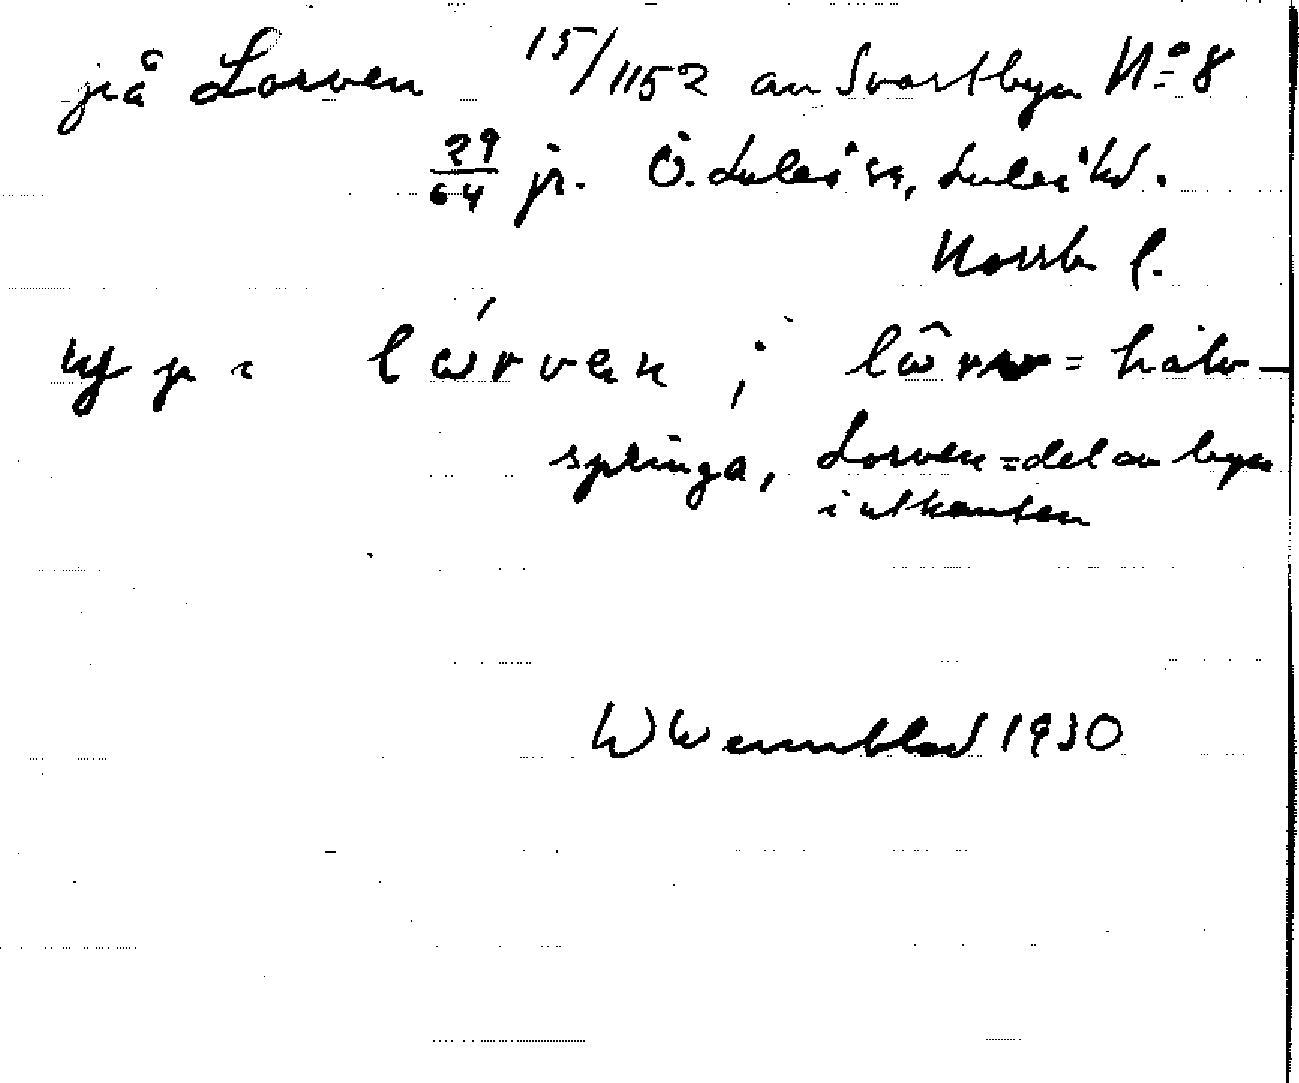 på Lorven 15/1152 av Svartbyn No 8
29/64 jr. Ö. Luleå sn, Luleå hd.
Norrb l.
lώrven ; lω̂rv = hålv-
springa, Lorven = del av byn
i utkanten
W Wennblad 1930